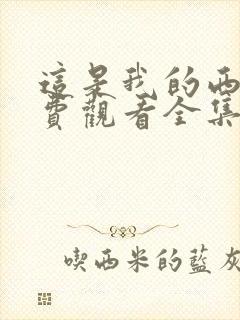 這是我的西
費觀看全集
喫西米的藍灰